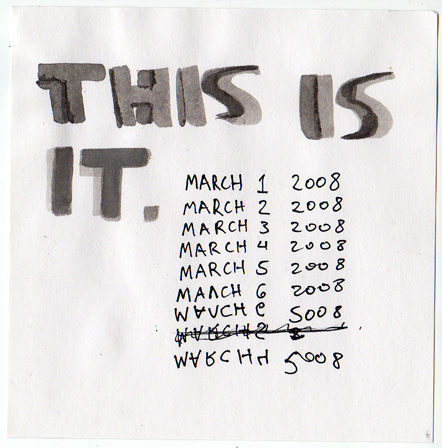 THIS IS
IT.
MARCH 1 2008
MARCH 2 2008
MARCH 3 2008
MARCH 4 2008
MARCH 5 2008
MARCH 6 2008
5008
5008